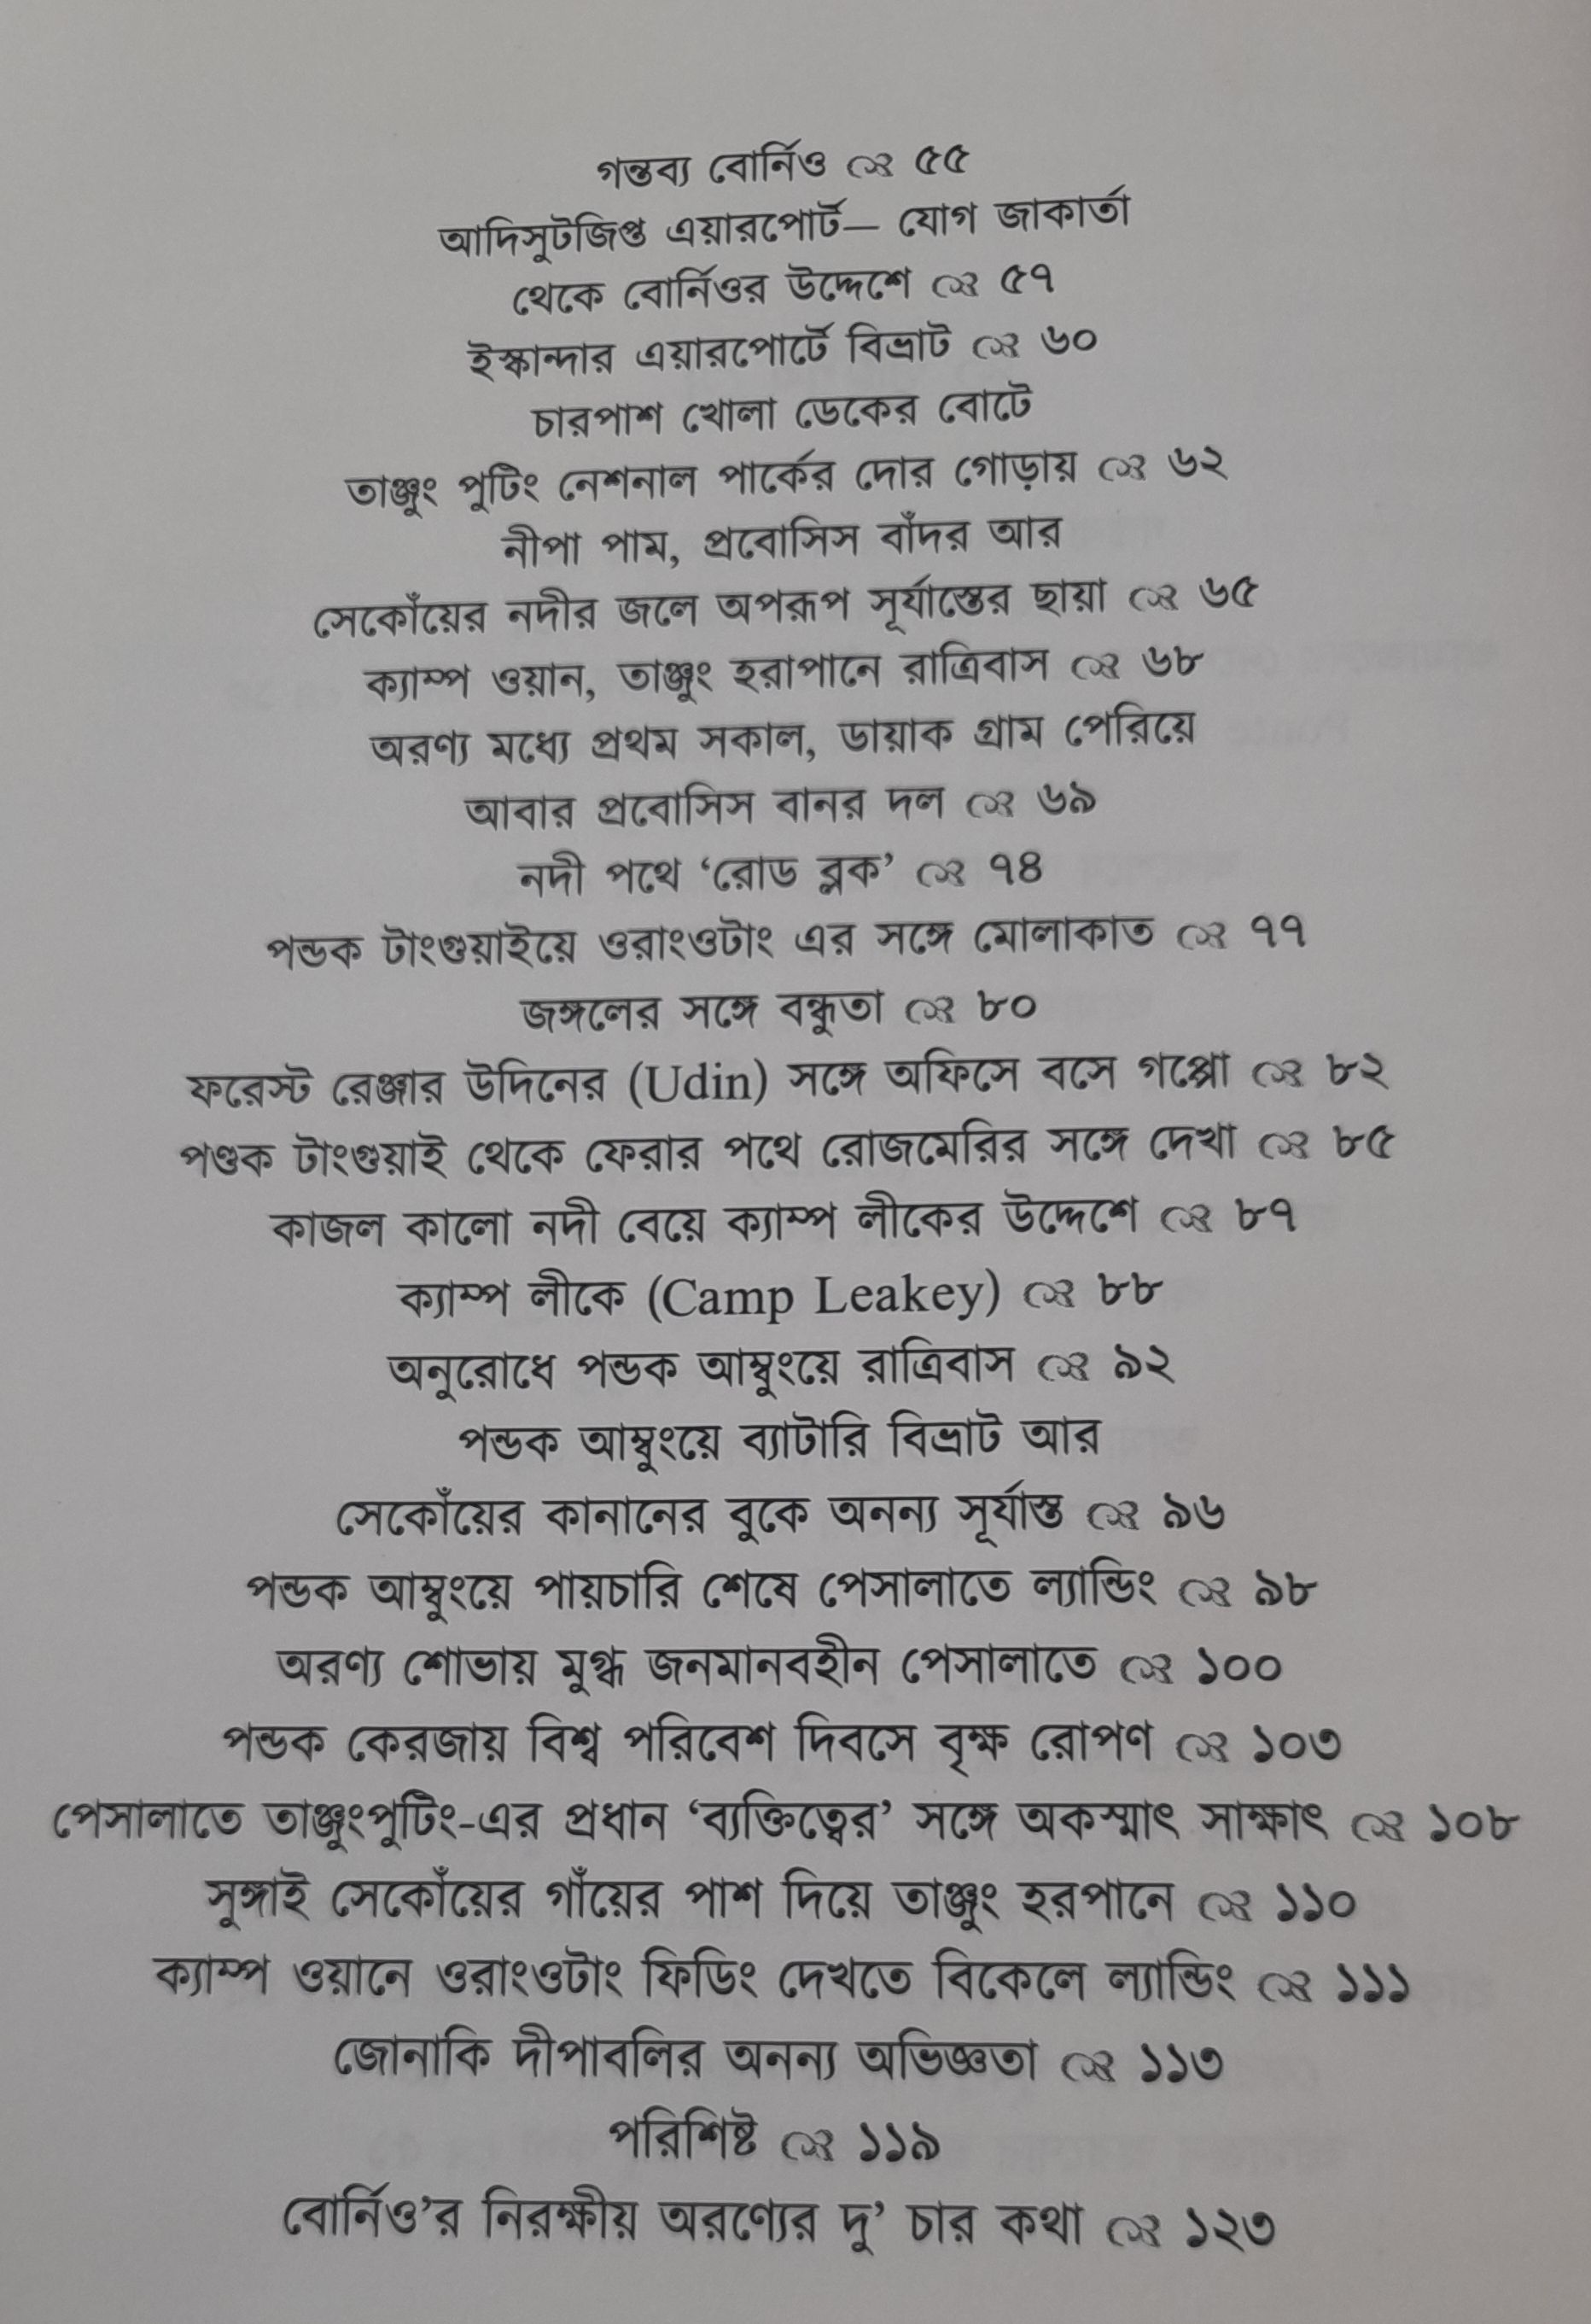 গন্তব্য বোর্নিও ৫৫
আদিসুটজিপ্ত এয়ারপোর্ট— যোগ জাকার্তা
থেকে বোর্নিওর উদ্দেশে ৫৭
ইস্কান্দার এয়ারপোর্টে বিভ্রাট ৬০
চারপাশ খোলা ডেকের বোটে
তাঞ্জুং পুটিং নেশনাল পার্কের দোর গোড়ায় ৬২
নীপা পাম, প্রবোসিস বাঁদর আর
সেকোঁয়ের নদীর জলে অপরূপ সূর্যাস্তের ছায়া ৬৫
ক্যাম্প ওয়ান, তাঞ্জুং হরাপানে রাত্রিবাস ৬৮
অরণ্য মধ্যে প্রথম সকাল, ডায়াক গ্রাম পেরিয়ে
আবার প্রবোসিস বানর দল ৬৯
নদী পথে ‘রোড ব্লক’ ৭৪
পন্ডক টাংগুয়াইয়ে ওরাংওটাং এর সঙ্গে মোলাকাত ৭৭
জঙ্গলের সঙ্গে বন্ধুতা ৮০
ফরেস্ট রেঞ্জার উদিনের (Udin) সঙ্গে অফিসে বসে গপ্পো ৮২
পণ্ডক টাংগুয়াই থেকে ফেরার পথে রোজমেরির সঙ্গে দেখা ৮৫
কাজল কালো নদী বেয়ে ক্যাম্প লীকের উদ্দেশে ৮৭
ক্যাম্প লীকে (Camp Leakey) ৮৮
অনুরোধে পন্ডক আম্বুংয়ে রাত্রিবাস ৯২
পন্ডক আম্বুংয়ে ব্যাটারি বিভ্রাট আর
সেকোঁয়ের কানানের বুকে অনন্য সূর্যাস্ত ৯৬
পন্ডক আম্বুংয়ে পায়চারি শেষে পেসালাতে ল্যান্ডিং ৯৮
অরণ্য শোভায় মুগ্ধ জনমানবহীন পেসালাতে ১০০
পন্ডক কেরজায় বিশ্ব পরিবেশ দিবসে বৃক্ষ রোপণ ১০৩
পেসালাতে তাঞ্জুংপুটিং-এর প্রধান ‘ব্যক্তিত্বের’ সঙ্গে অকস্মাৎ সাক্ষাৎ ১০৮
সুঙ্গাই সেকোঁয়ের গাঁয়ের পাশ দিয়ে তাঞ্জুং হরপানে ১১০
ক্যাম্প ওয়ানে ওরাংওটাং ফিডিং দেখতে বিকেলে ল্যান্ডিং ১১১
জোনাকি দীপাবলির অনন্য অভিজ্ঞতা ১১৩
পরিশিষ্ট ১১৯
বোর্নিও’র নিরক্ষীয় অরণ্যের দু’ চার কথা ১২৩